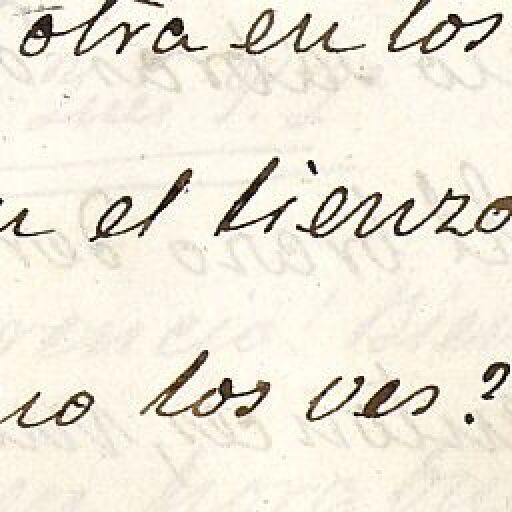 otra en los
el lienzo
no los ves?